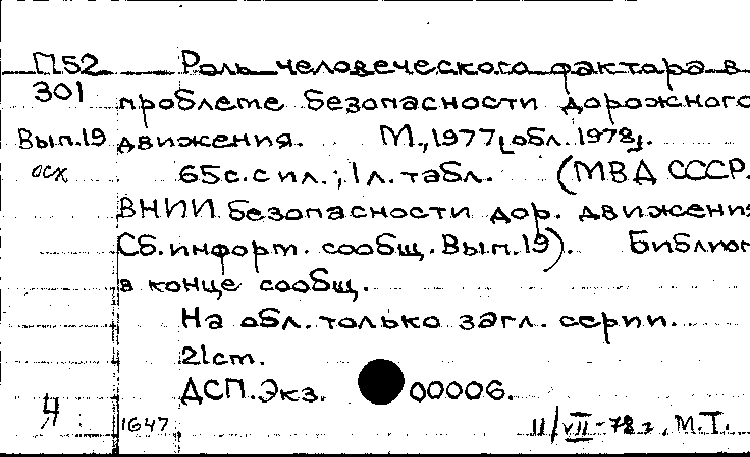 П52 Роль человеческого фактора в
301 проблеме безопасности дорожного
Вып.19 движения. М., 1977 [обл. 1978].
осх 65с. с ил.; 1л. табл. (МВД СССР.
ВНИИ безопасности дор. движения
Сб. информ. сообщ. Вып.19). Библиог
в конце сообщ.
На обл. только загл. серии.
21см.
ДСП. Экз. 00006.
Ч 1647 11/VII-78г. М.Т.